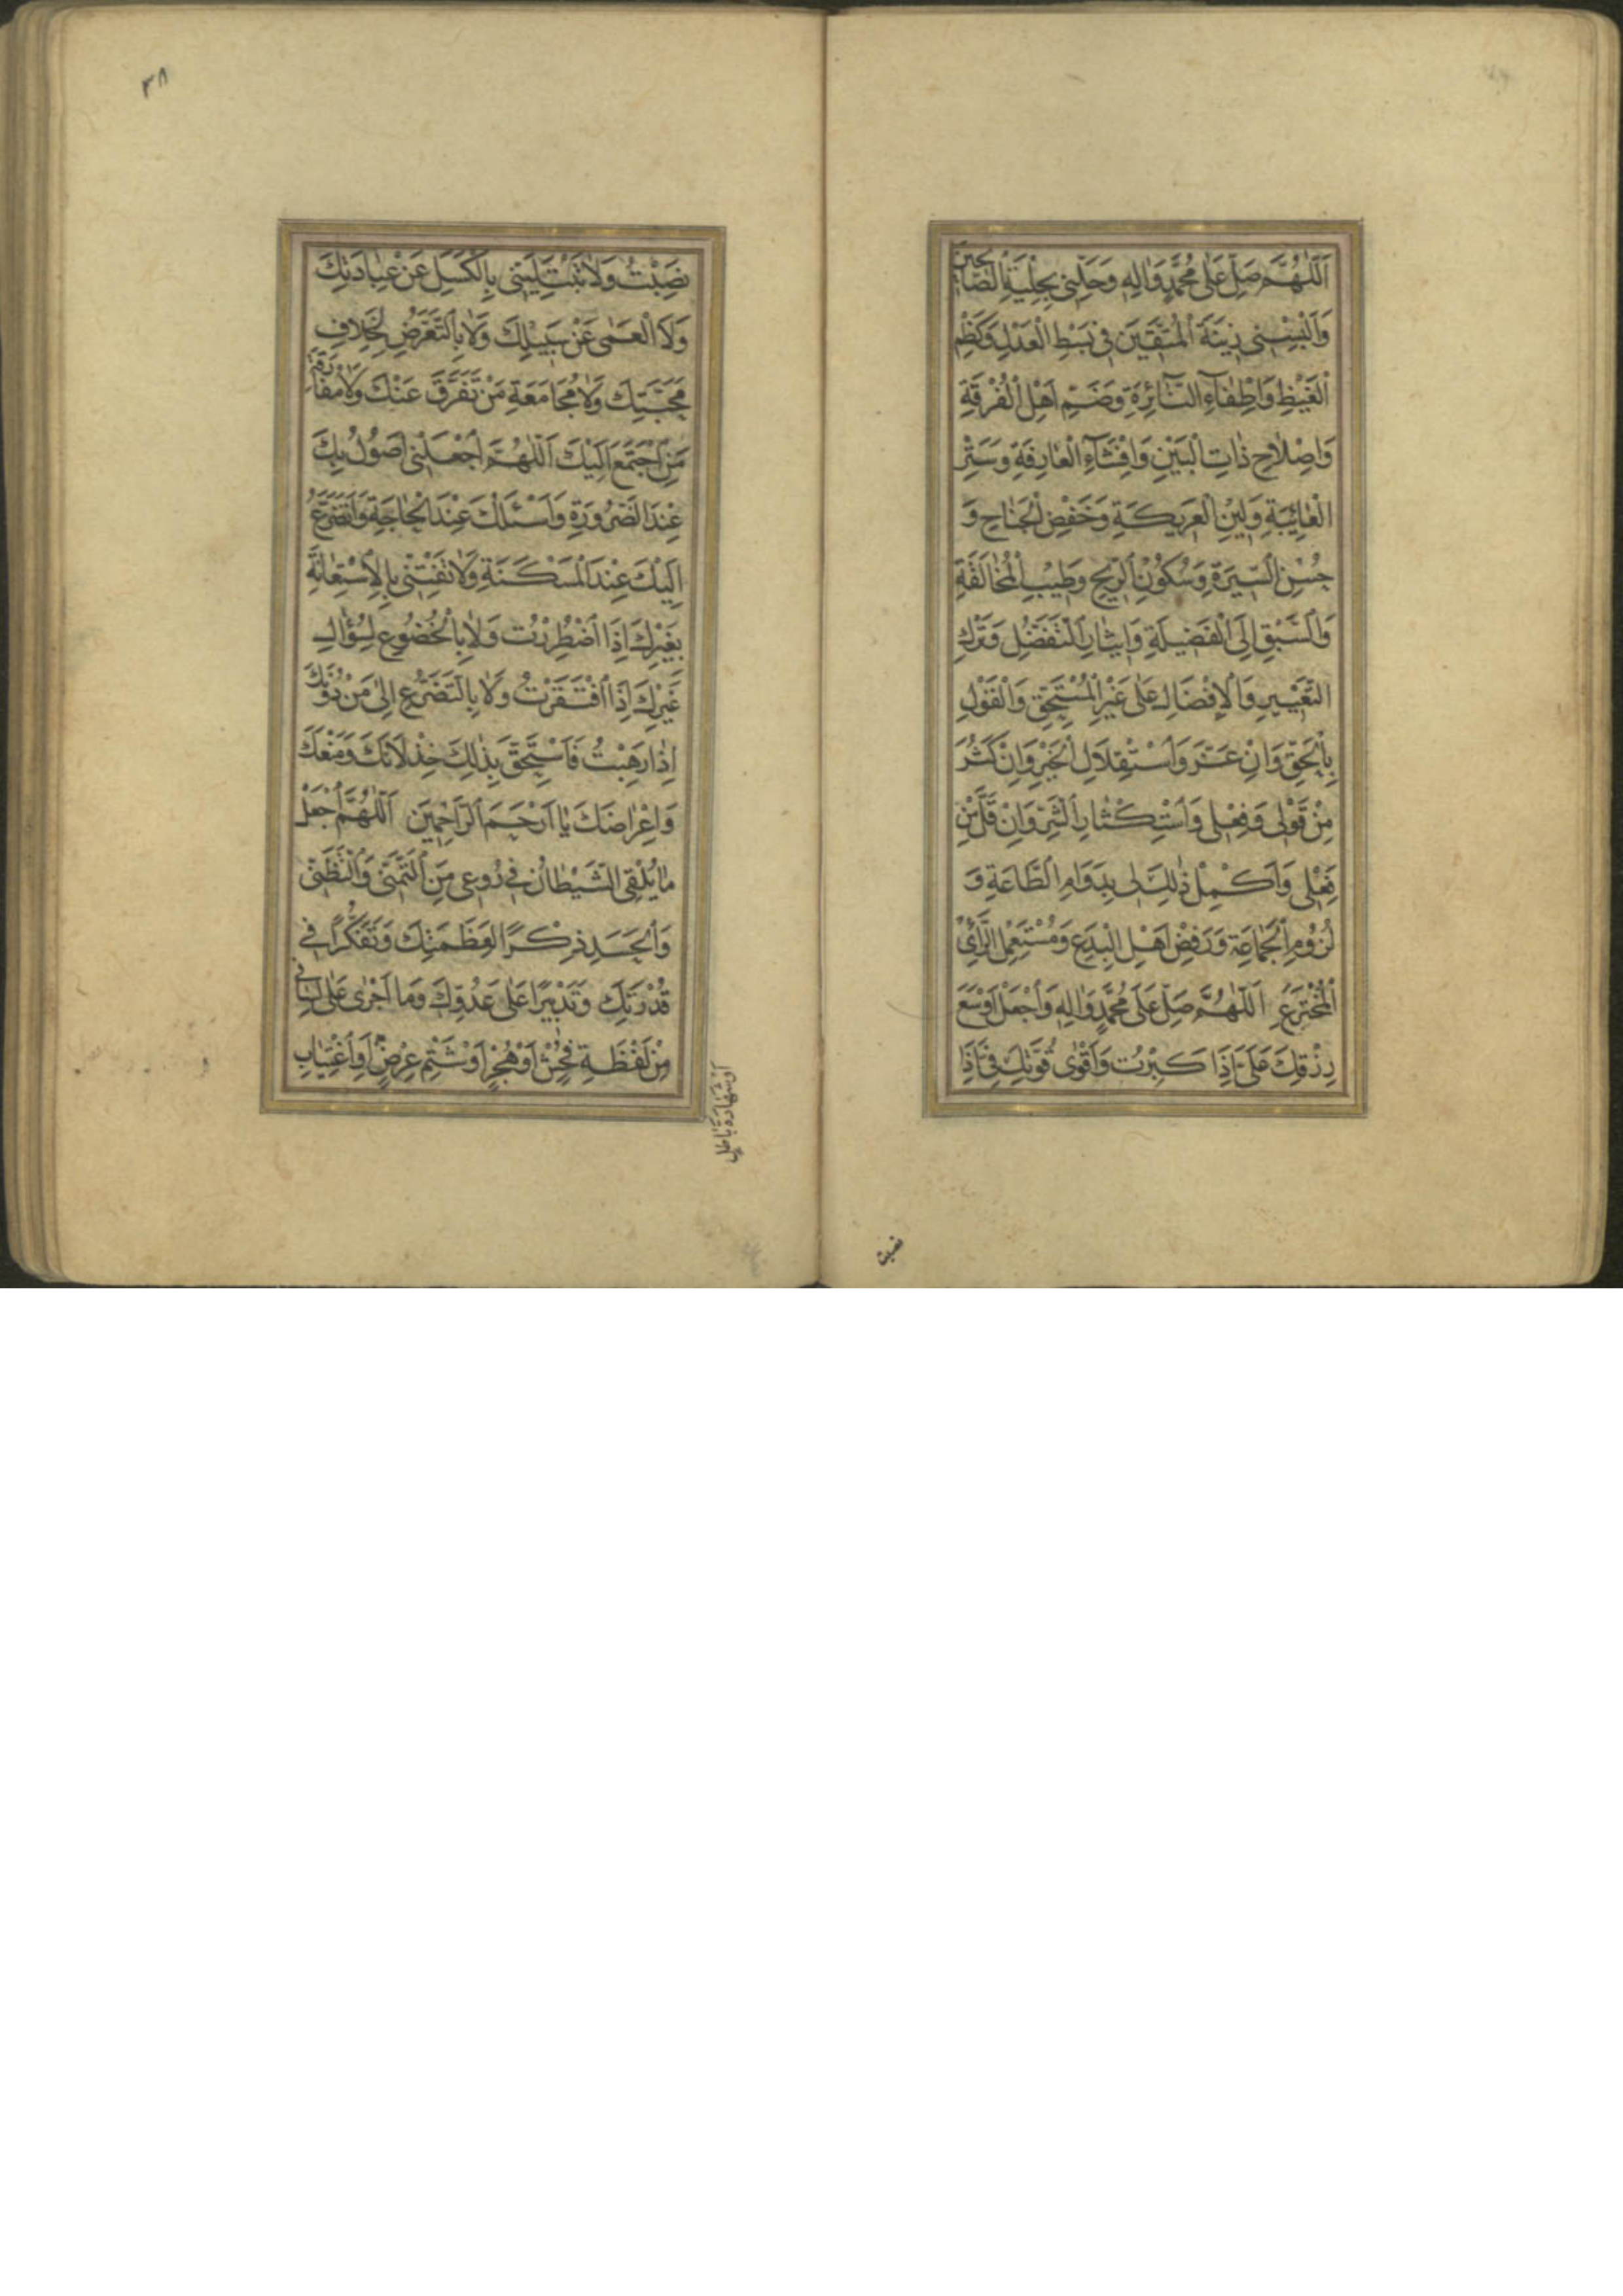 اَللّٰهُمَّ صَلِّ عَلٰى مُحَمَّدٍ وَاٰلِهٖ وَحَلِّنِى بِحِلْيَةِ الصَّالِحِينَ
وَاَلْبِسْنِى زِينَةَ الْمُتَّقِينَ فِى بَسْطِ الْعَدْلِ وَكَظْمِ
الْغَيْظِ وَاِطْفَآءِ النَّآئِرَةِ وَضَمِّ اَهْلِ الْفُرْقَةِ
وَاِصْلَاحِ ذَاتِ الْبَيْنِ وَاِفْشَآءِ الْعَارِفَةِ وَسَتْرِ
الْعَائِبَةِ وَلِينِ الْعَرِيكَةِ وَخَفْضِ الْجَنَاحِ وَ
حُسْنِ السِّيرَةِ وَسُكُونِ الرِّيحِ وَطِيبِ الْمُخَالَقَةِ
وَالسَّبْقِ اِلَى الْفَضِيلَةِ وَاِيثَارِ التَّفَضُّلِ وَتَرْكِ
التَّعْيِيرِ وَالْاِفْضَالِ عَلٰى غَيْرِ الْمُسْتَحِقِّ وَالْقَوْلِ
بِالْحَقِّ وَاِنْ عَزَّ وَاسْتِقْلَالِ الْخَيْرِ وَاِنْ كَثُرَ
مِنْ قَوْلِى وَفِعْلِى وَاسْتِكْثَارِ الشَّرِّ وَاِنْ قَلَّ مِنْ
فِعْلِى وَاَكْمِلْ ذٰلِكَ لِى بِدَوَامِ الطَّاعَةِ وَ
لُزُومِ الْجَمَاعَةِ وَرَفْضِ اَهْلِ الْبِدَعِ وَمُسْتَعْمِلِ الرَّأْىِ
الْمُخْتَرَعِ اَللّٰهُمَّ صَلِّ عَلٰى مُحَمَّدٍ وَاٰلِهٖ وَاجْعَلْ اَوْسَعَ
رِزْقِكَ عَلَىَّ اِذَا كَبِرْتُ وَاَقْوٰى قُوَّتِكَ فِىَّ اِذَا
نصبت
٣٨
نَصِبْتُ وَلَا تَبْتَلِيَنِّى بِالْكَسَلِ عَنْ عِبَادَتِكَ
وَلَا الْعَمٰى عَنْ سَبِيلِكَ وَلَا بِالتَّعَرُّضِ لِخِلَافِ
مَحَبَّتِكَ وَلَا مُجَامَعَةِ مَنْ تَفَرَّقَ عَنْكَ وَلَا مُفَارَقَةِ
مَنِ اجْتَمَعَ اِلَيْكَ اَللّٰهُمَّ اجْعَلْنِى اَصُولُ بِكَ
عِنْدَ الضَّرُورَةِ وَاَسْئَلُكَ عِنْدَ الْحَاجَةِ وَاَتَضَرَّعُ
اِلَيْكَ عِنْدَ الْمَسْكَنَةِ وَلَا تَفْتِنِّى بِالْاِسْتِعَانَةِ
بِغَيْرِكَ اِذَا اضْطُرِرْتُ وَلَا بِالْخُضُوعِ لِسُؤَالِ
غَيْرِكَ اِذَا افْتَقَرْتُ وَلَا بِالتَّضَرُّعِ اِلٰى مَنْ دُونَكَ
اِذَا رَهِبْتُ فَاَسْتَحِقَّ بِذٰلِكَ خِذْلَانَكَ وَمَنْعَكَ
وَاِعْرَاضَكَ يَا اَرْحَمَ الرَّاحِمِينَ اَللّٰهُمَّ اجْعَلْ
مَا يُلْقِى الشَّيْطَانُ فِى رُوعِى مِنَ التَّمَنِّى وَالتَّظَنِّى
وَالْحَسَدِ ذِكْرًا لِعَظَمَتِكَ وَتَفَكُّرًا فِى
قُدْرَتِكَ وَتَدْبِيرًا عَلٰى عَدُوِّكَ وَمَا اَجْرٰى عَلٰى لِسَانِى
مِنْ لَفْظَةِ فُحْشٍ اَوْ هُجْرٍ اَوْ شَتْمِ عِرْضٍ اَوِ اغْتِيَابِ
اَوْ شَهَادَةِ بَاطِلٍ